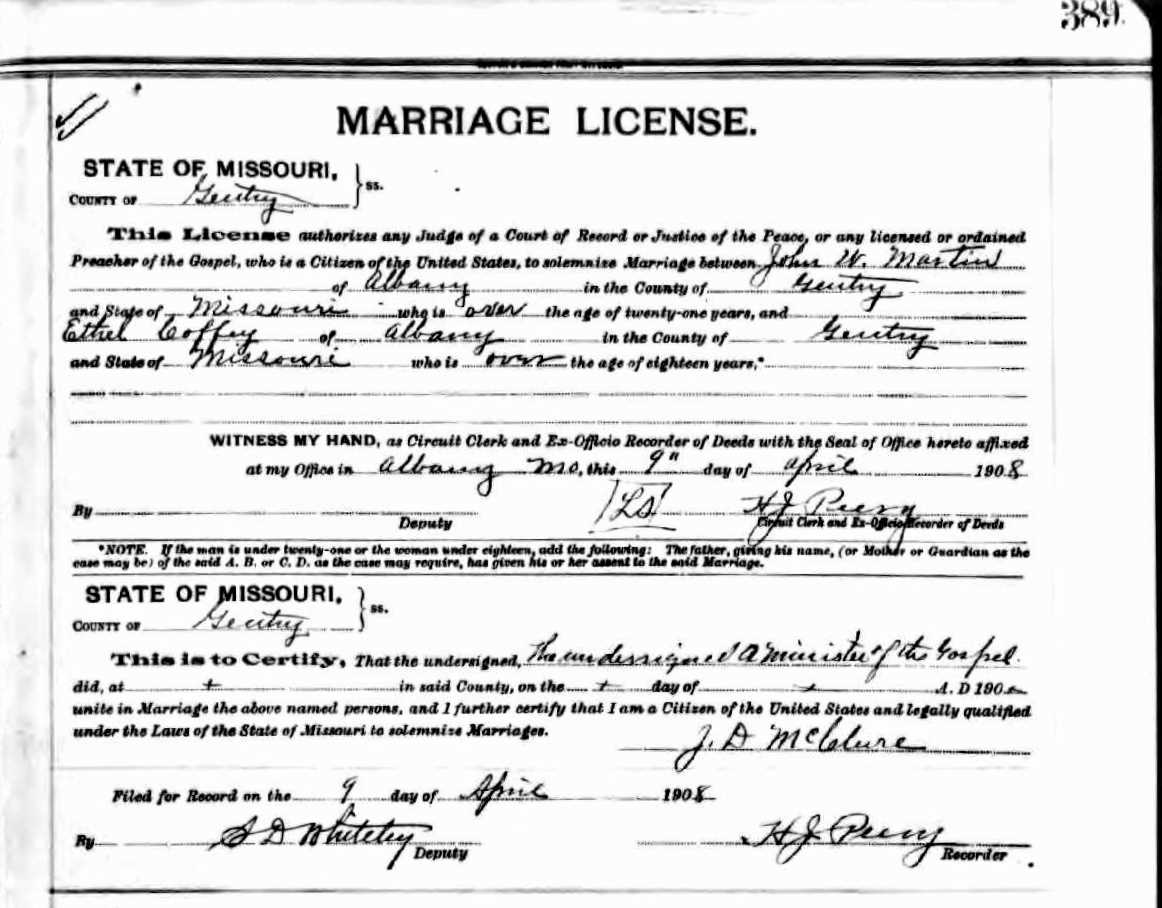 389
MARRIAGE LICENSE.
STATE OF MISSOURI,
COUNTY OF Gentry } ss.
This License authorizes any Judge of a Court of Record or Justice of the Peace, or any licensed or ordained
Preacher of the Gospel, who is a Citizen of the United States, to solemnize Marriage between John W. Martin
of Albany in the County of Gentry
and State of Missouri who is over the age of twenty-one years, and
Ethel Coffey of Albany in the County of Gentry
and State of Missouri who is over the age of eighteen years,*
WITNESS MY HAND, as Circuit Clerk and Ex-Officio Recorder of Deeds with the Seal of Office hereto affixed
at my Office in Albany Mo, this 9" day of April 1908
By LS H J Peery
Deputy Circuit Clerk and Ex-Officio Recorder of Deeds
*NOTE. If the man is under twenty-one or the woman under eighteen, add the following: The father, giving his name, (or Mother or Guardian as the
case may be) of the said A. B. or C. D. as the case may require, has given his or her assent to the said Marriage.
STATE OF MISSOURI,
COUNTY OF Gentry } ss.
This is to Certify, That the undersigned, The undersigned A Minister of the Gospel.
did, at + in said County, on the + day of + A. D 190
unite in Marriage the above named persons, and I further certify that I am a Citizen of the United States and legally qualified
under the Laws of the State of Missouri to solemnize Marriages.
J. D McClure
Filed for Record on the 9 day of April 1908
By S D Whiteley H J Peery
Deputy Recorder